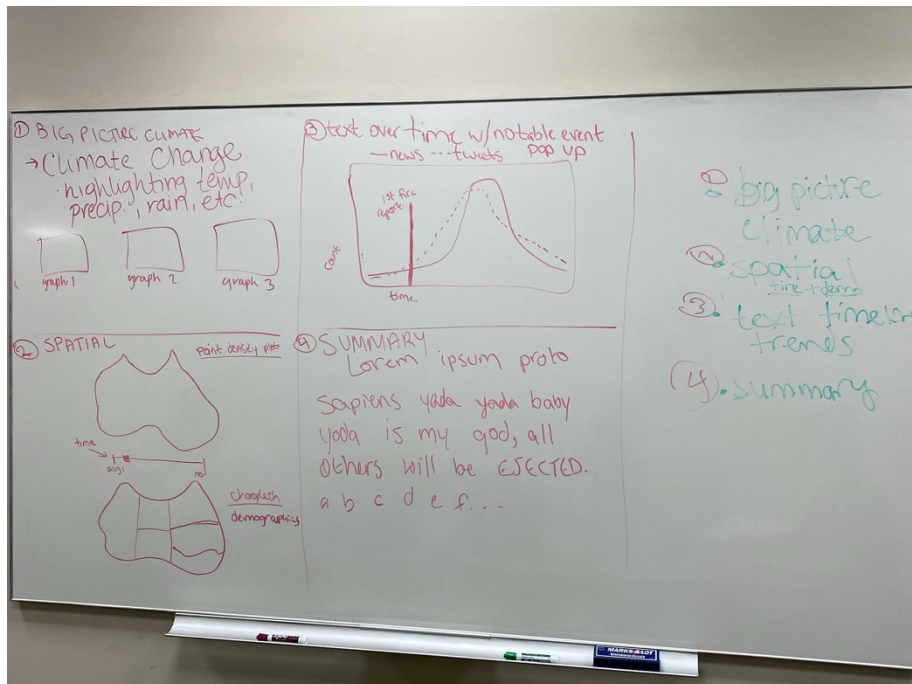 ① BIG PICTURE CLIMATE
→ Climate Change
highlighting temp,
precip., rain, etc.
graph 1
graph 2
graph 3
② SPATIAL
Point density plots
time
aug1
demographics
③ text over time w/ notable event
— news --- tweets pop up
1st fire
report
count
time
④ SUMMARY
Lorem ipsum proto
sapiens yada yada baby
yoda is my god, all
others will be EJECTED.
a b c d e f...
① • big picture
climate
② • spatial
③ • text timeline
trends
④ • summary
MARKS-A-LOT